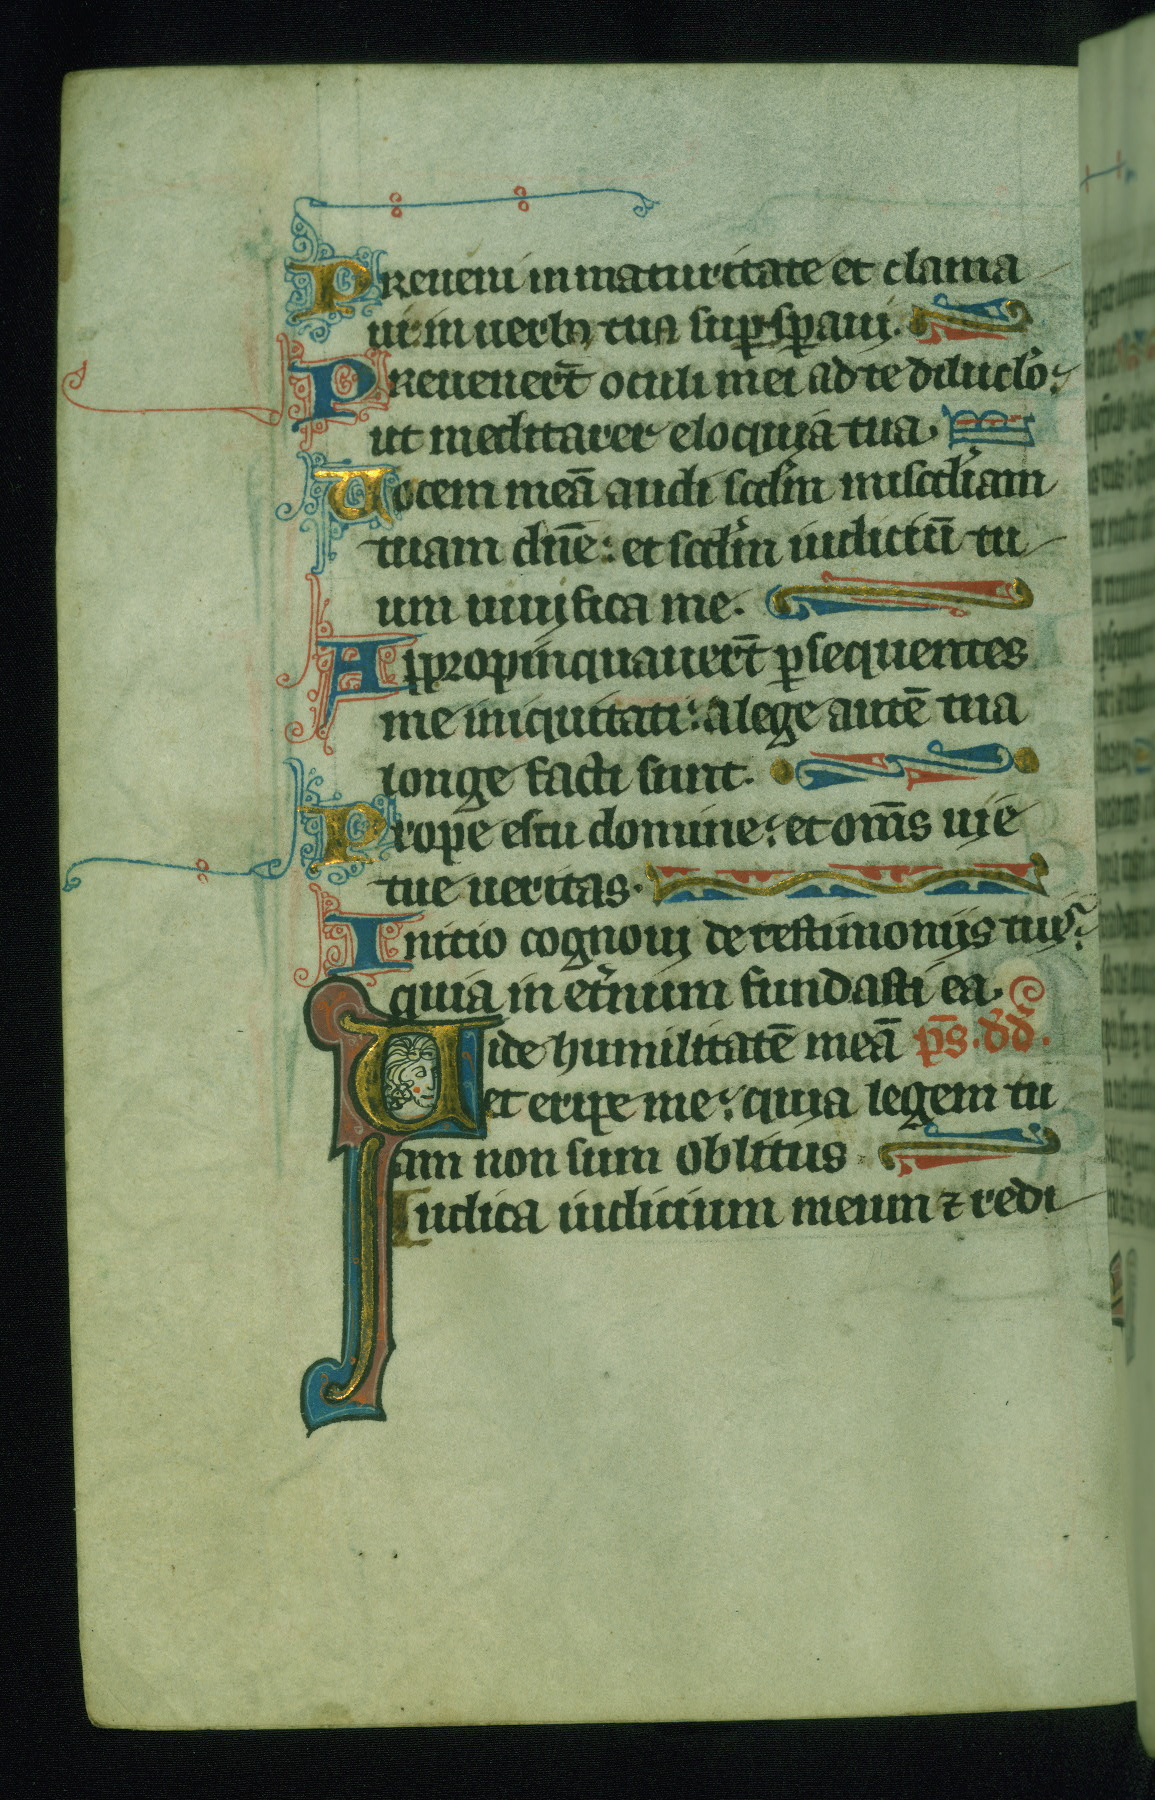 Preueni in maturitate et clama
ui: in uerba tua sup̱sp̱aui.
Preuenert̄ oculi mei ad te diluclo᷒:
ut meditarer eloquia tua.
Uocem meā audi scdm̄ misc̄diam
tuam dn̄e: et scdm̄ iudiciū tu
um uiuifica me.
Appropinquauert̄ p̱sequentes
me iniquitati: a lege autē tua
longe facti sunt.
Prope es tu domine: et om̄s uie
tue ueritas.
Initio cognoui de testimoniis tuis:
quia in et̄num fundasti ea.
Uide humilitatē meā p̄s. dd̄.
et eripe me: quia legem tu
am non sum oblitus
Iudica iudicium meum ⁊ redi